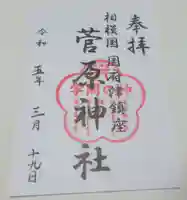 奉拝
相模国国府津鎮座
菅原神社
令和五年三月十九日